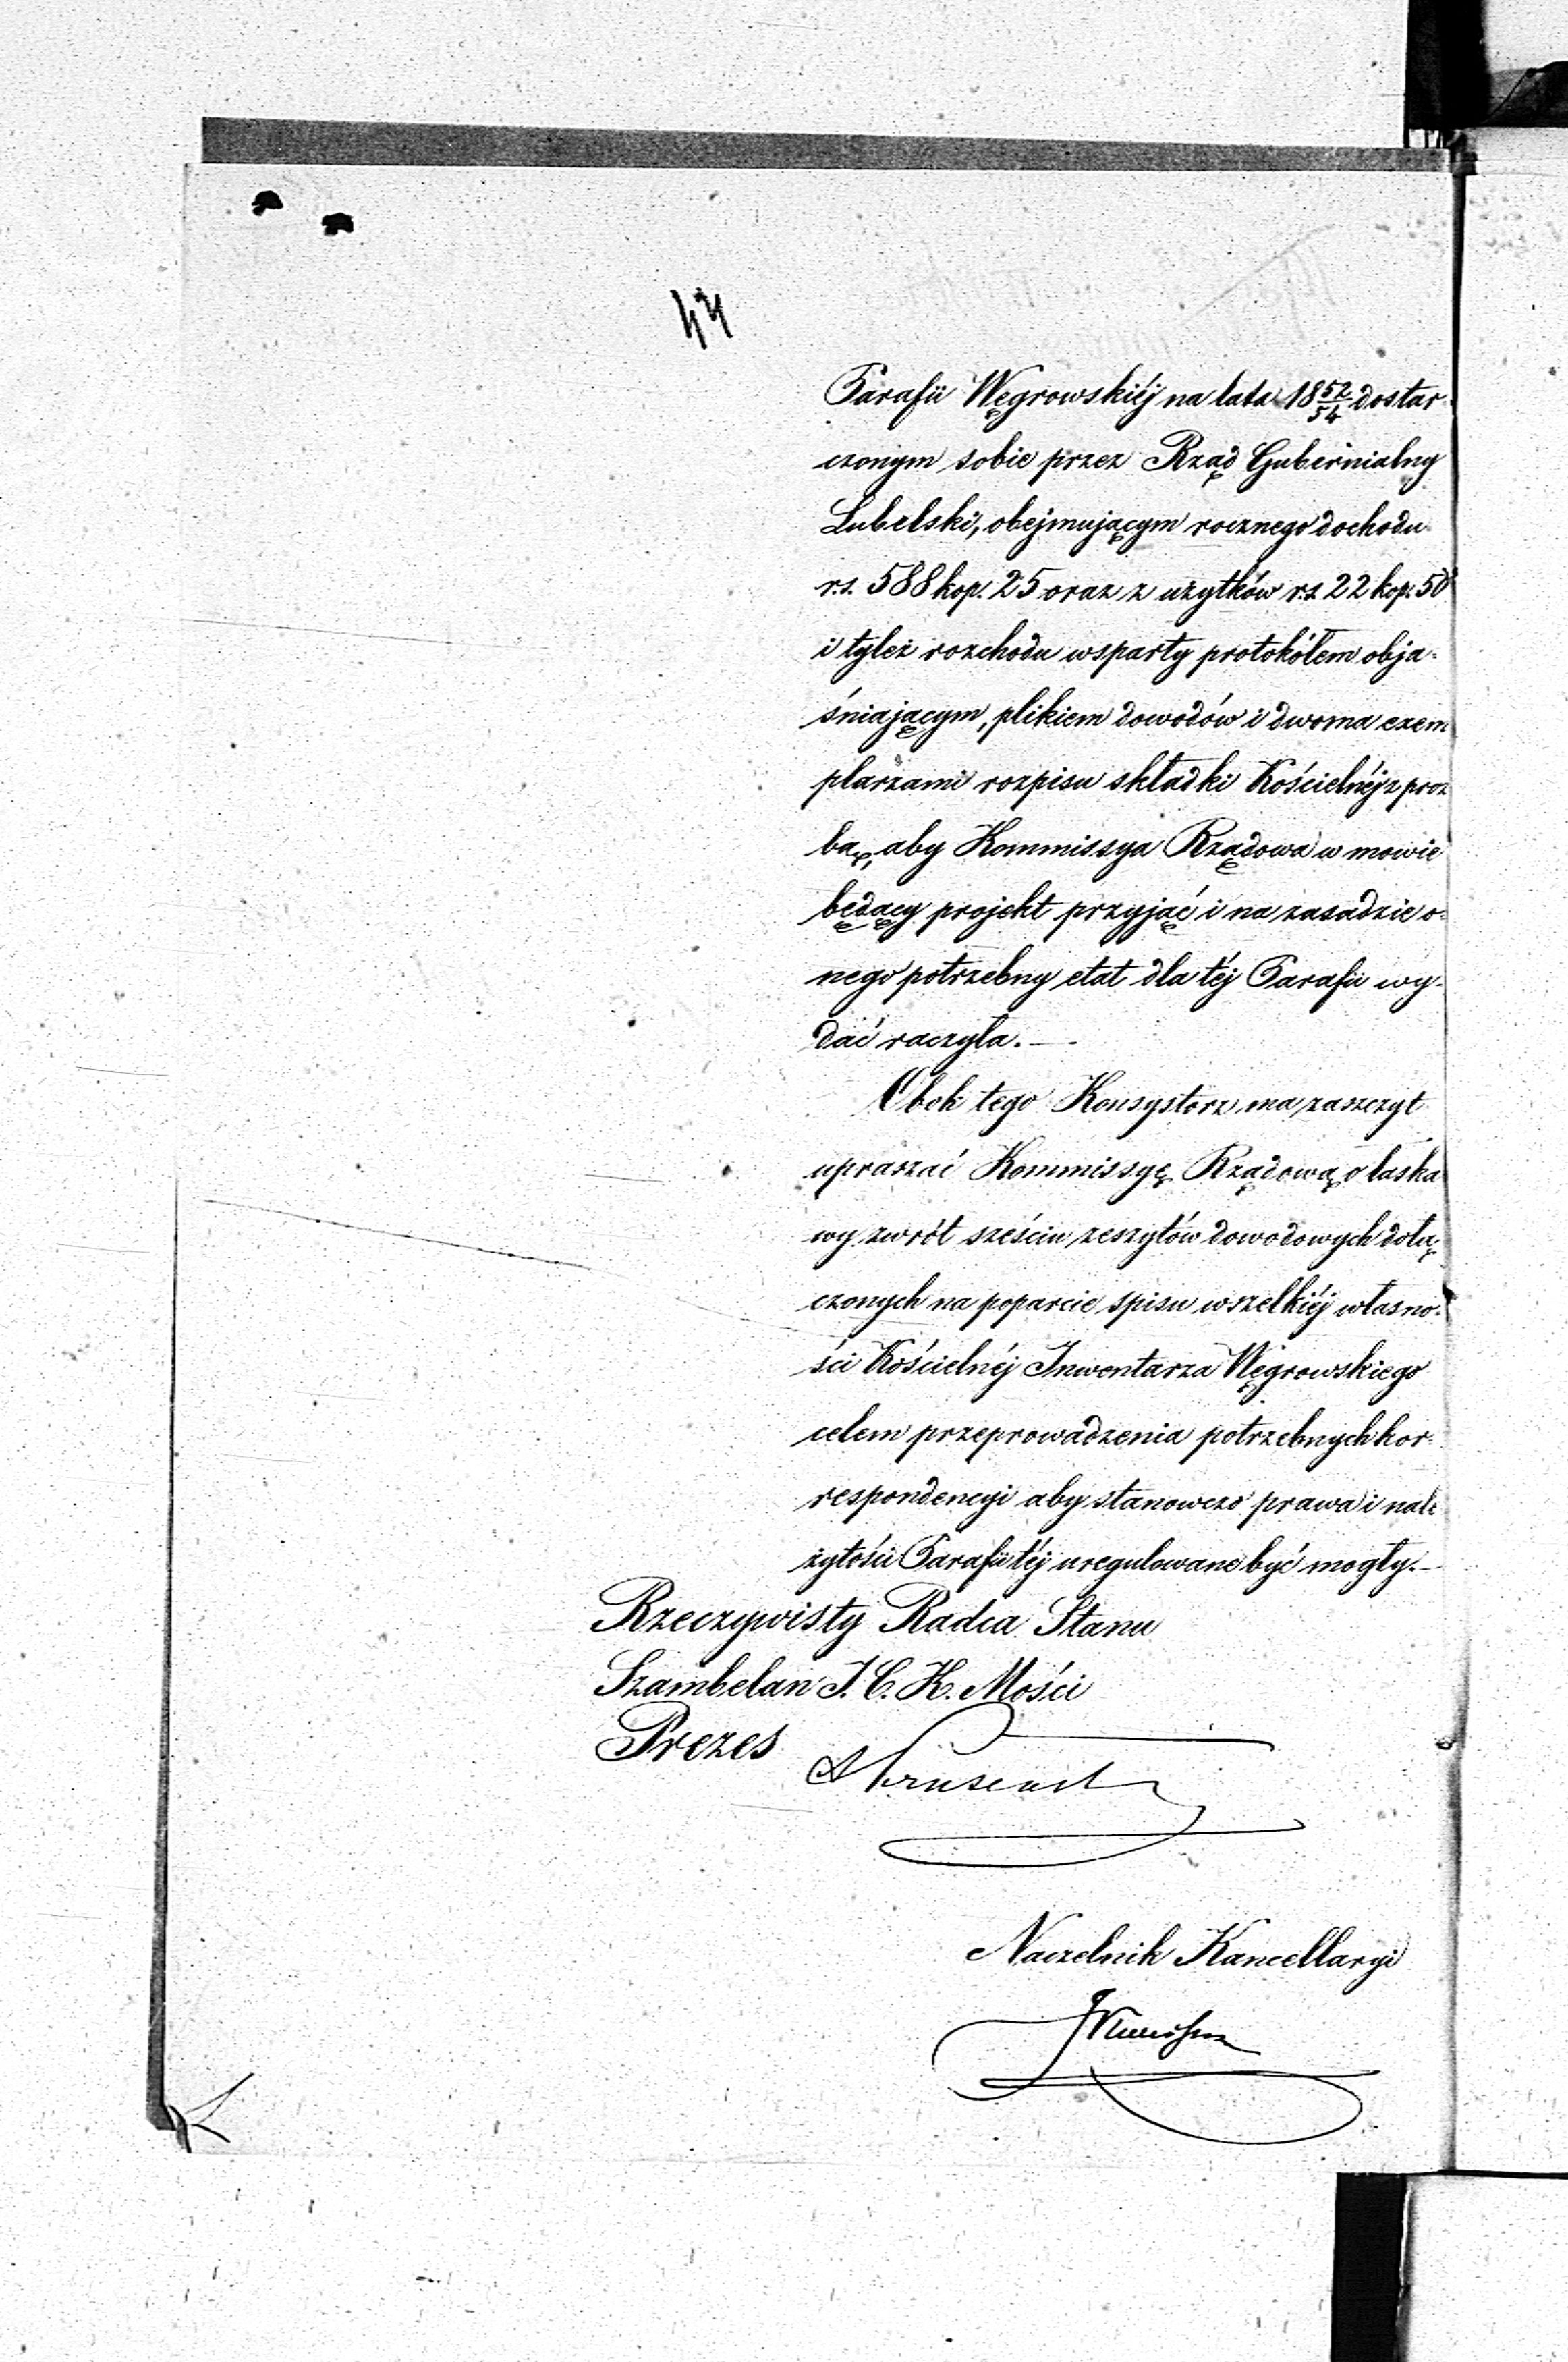 44
Parafii Węgrowskiéj na lata 18 52/54 dostar-
czonym sobie przez Rząd Gubernialny
Lubelski, obejmującym rocznego dochodu
r.s. 588 kop. 25 oraz z użytków r.s. 22 kop. 50
i tyleż rozchodu wsparty protokółem obja-
śniającym, plikiem dowodów i dwoma exem
plarzami rozpisu składki Kościelnéj z proz
bą, aby Kommissya Rządowa w mowie
będący projekt przyjąć i na zasadzie o-
nego potrzebny etat dla téj Parafii wy-
dać raczyła. —
Obok tego Konsystorz ma zaszczyt
upraszać Kommissyę Rządową o łaska
wy zwrót sześciu zeszytów dowodowych dołą-
czonych na poparcie spisu wszelkiéj własno-
ści Kościelnéj Inwentarza Węgrowskiego
celem przeprowadzenia potrzebnych kor-
respondencyi aby stanowczo prawa i nale
żytości Parafii téj uregulowane być mogły. —
Rzeczywisty Radca Stanu
Szambelan J. C. K. Mości
Prezes
Naczelnik Kancellaryi